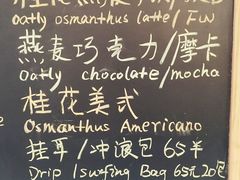 oatly osmanthus latte/ FW
燕麦巧克力/摩卡
Oatly chocolate/mocha
桂花美式
Osmanthus Americano
挂耳/冲液包 65¥
Drip /surfing Bag 65元20包